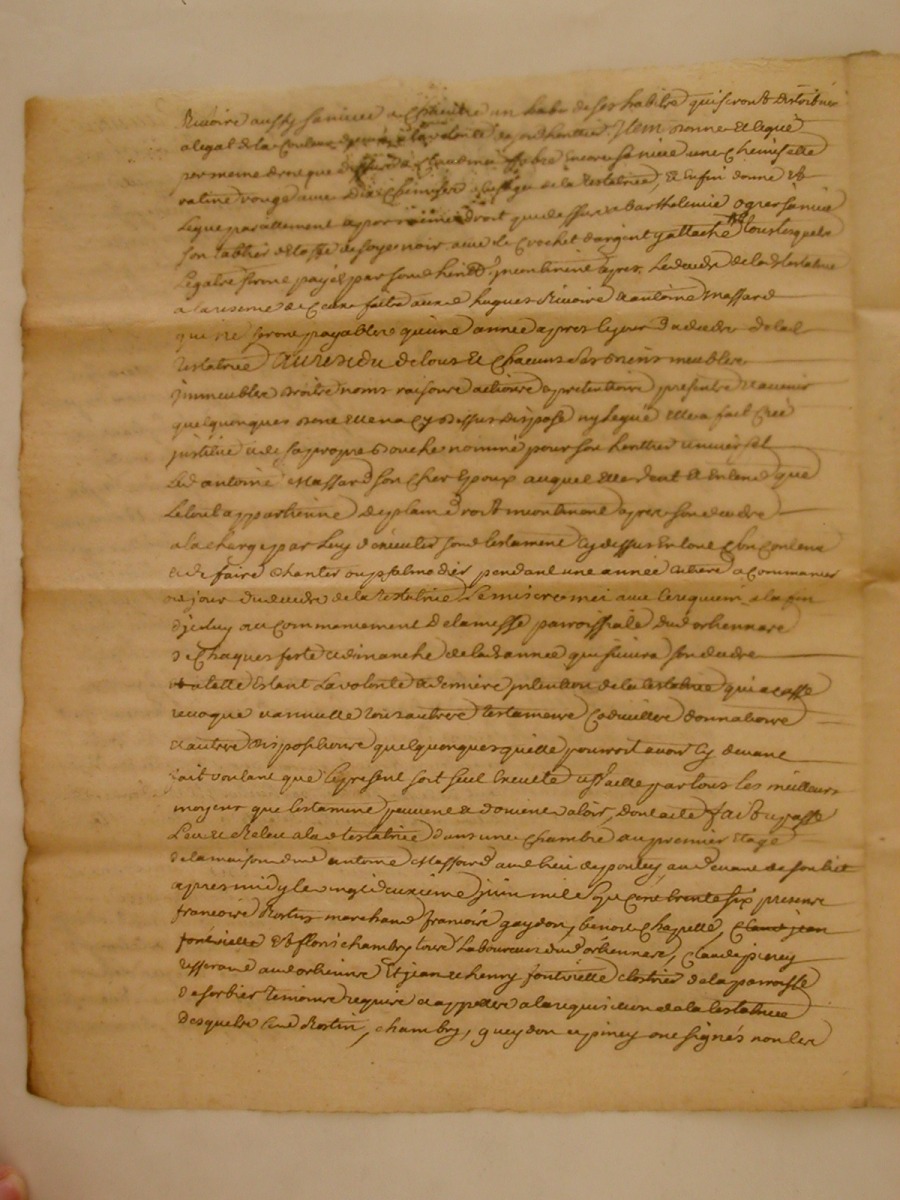 Rivoire aussy sa niece a chacune un habit de ses habits qui seront distribués
a legal de la volonté de sond heritier Item donne et legue
par meme droit que dessus a encore sa niece une chemisette
ratine rouge avec dix chemises a l'usage de la testatrice, et enfin donne et
legue parallement a par meme droit que dessus a Barthelemie ogier sa niece
son tablier de taffetas de soye noir avec le crochet d'argent y attaché tous lesquels
legats seront payés par sond herit. incontinent apres le deceds de la d testatrice
a la reserve de ceux faits aux d hugues Rivoire et antoine Massard
qui ne seront payables qu'une année apres le jour du deceds de la d
testatrice Au residu de tous et chacuns ses biens meubles
immeubles droits noms raisons actions et pretentions presents et avenir
quelquonques dont elle n'a cy dessus disposé ny legué elle a fait créé
institué et de sa propre bouche nommé pour son heritier universel
led antoine Massard son cher epoux auquel elle veut et entend que
le tout appartienne de plain droit incontinent apres son deceds
a la charge par luy d'executer sond testament cy dessus en tout son contenu
et de faire chanter ou psalmodier pendant une année entiere a commancer
du jour du deceds de la testatrice le miserere mei avec le requiem a la fin
d'iceluy au commancement de la messe parroissiale dud
de chaques feste et dimanche de lad année qui suivra son deceds
telle estant la volonté et derniere intention de la testatrice qui a cassé
revoqué et annullé tous autres testaments codicilles donnations
et autres dispositions quelquonques qu'elle pourroit avoir cy devant
fait voulant que le present soit seul executé et vaille par tous les meilleurs
moyens que testament peuvent et doivent valoir, dont acte fait et passé
leu et releu a lad testatrice dans une chambre au premier etage
de la maison dud antoine Massard au lieu de pouley, au devant de son lict
apres midy le vingt deuxieme juin mil sept cent trente six presents
françois Rostin marchand françois gaydon, benoit chapelle, Claude jean
fontvielle et floris chambry tous laboureurs dud, Claude piney
tisserand et jean et henry fontvielle clostrier de la parroisse
de sorbier temoins requis et appellés a la requisition de la testatrice
desquels led Rostin, chambry, gueydon et piney ont signés non les